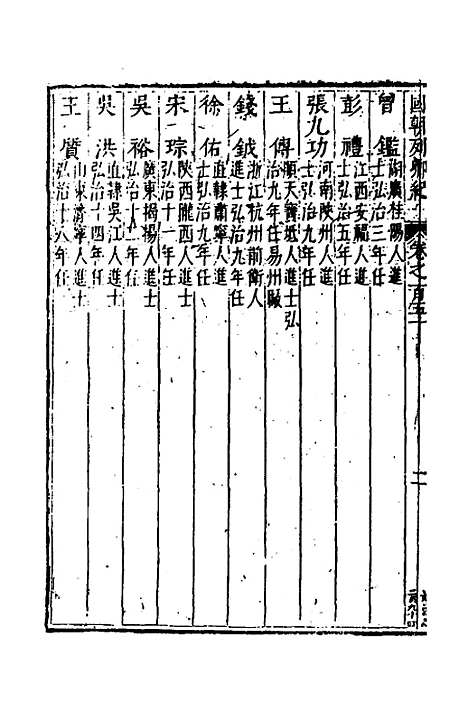 國朝列卿紀 卷之一百五十
曾鑑 湖廣桂陽人進
士弘治三年任
彭禮 江西安福人進
士弘治五年任
張九功 河南陝州人進
士弘治九年任
王傅 順天寶坻人進士弘
治九年任易州
錢鉞 浙江杭州前衛人
進士弘治九年任
徐佑 直隸肅寧人進
士弘治九年任
宋琮 陝西隴西人進士
弘治十一年任
吳裕 廣東揭揚人進士
弘治十二年任
吳洪 直隸吳江人進士
弘治十四年任
王質 山東濟寧人進士
弘治十八年任